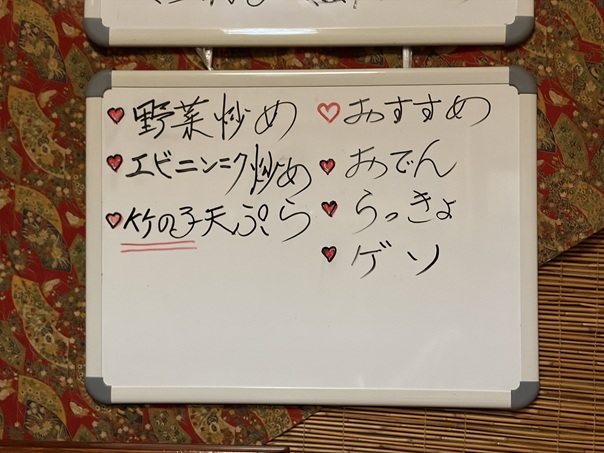 ♥野菜炒め
♥エビニンニク炒め
♥竹の子天ぷら
♡おすすめ
♥おでん
♥らっきょ
♥ゲソ